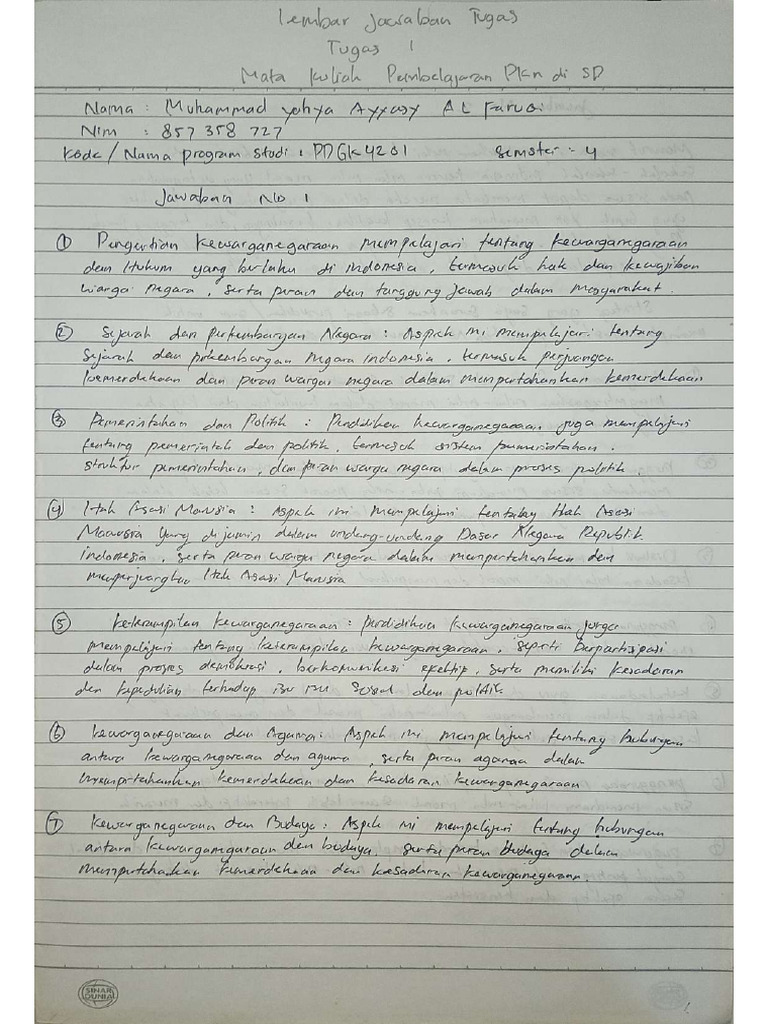 Lembar Jawaban Tugas
Tugas 1
Mata Kuliah Pembelajaran PKn di SD
Nama : Muhammad yahya Ayyasy AL Faruqi
Nim : 857 358 727
Kode / Nama program studi : PDGK4201 Semster : 4
Jawaban No 1
① Pengertian Kewarganegaraan mempelajari tentang kewarganegaraan
dan Hukum yang berlaku di indonesia, termasuk hak dan kewajiban
warga negara, serta peran dan tanggung jawab dalam masyarakat.
② Sejarah dan perkembangan Negara : Aspek ini mempelajari tentang
sejarah dan perkembangan negara indonesia, termasuk perjuangan
kemerdekaan dan peran warga negara dalam mempertahankan kemerdekaan
③ Pemerintahan dan Politik : Pendidikan kewarganegaraan juga mempelajari
tentang pemerintah dan politik, termasuk sistem pemerintahan,
struktur pemerintahan, dan peran warga negara dalam proses politik.
④ Hak Asasi Manusia : Aspek ini mempelajari tentang Hak Asasi
Manusia yang dijamin dalam undang-undang Dasar Negara Republik
indonesia, serta peran warga negara dalam mempertahankan dan
memperjuangkan Hak Asasi Manusia
⑤ keterampilan kewarganegaraan : pendidikan kewarganegaraan juga
mempelajari tentang keterampilan kewarganegaraan, seperti berpartisipasi
dalam proses demokrasi, berkomunikasi efektip, serta memiliki kesadaran
dan kepedulian terhadap isu isu sosial dan politik
⑥ kewarganegaraan dan Agama : Aspek ini mempelajari tentang hubungan
antara kewarganegaraan dan agama, serta peran agama dalam
mempertahankan kemerdekaan dan kesadaran kewarganegaraan
⑦ kewarganegaraan dan Budaya : Aspek ini mempelajari tentang hubungan
antara kewarganegaraan dan budaya, serta peran budaya dalam
mempertahankan kemerdekaan dan kesadaran kewarganegaraan.
SINAR
DUNIA